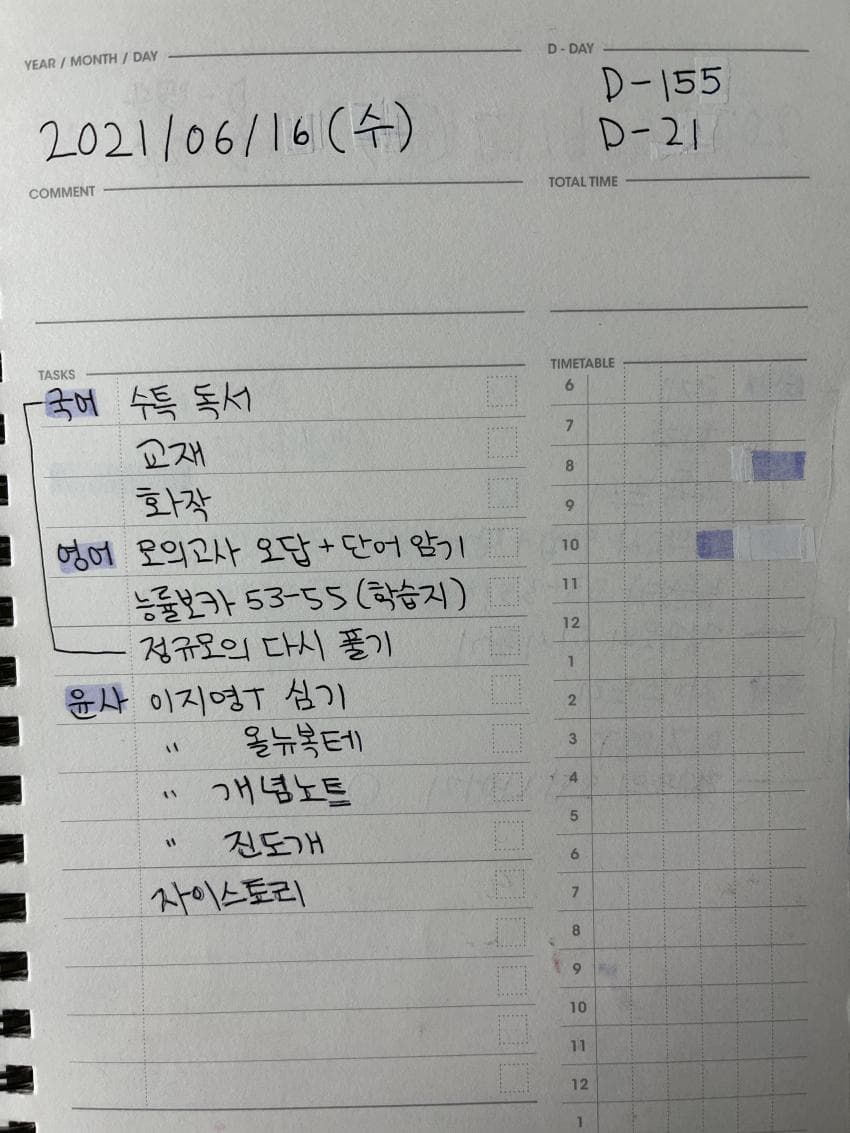 YEAR / MONTH / DAY
2021/06/16(수)
D - DAY
D-155
D-21
COMMENT
TOTAL TIME
TASKS
국어 수특 독서
교재
화작
영어 모의고사 오답+단어 암기
능률보카 53-55(학습지)
정규모의 다시 풀기
윤사 이지영T 심기
" 올뉴복테
" 개념노트
" 진도개
자이스토리
TIMETABLE
6
7
8
9
10
11
12
1
2
3
4
5
6
7
8
9
10
11
12
1